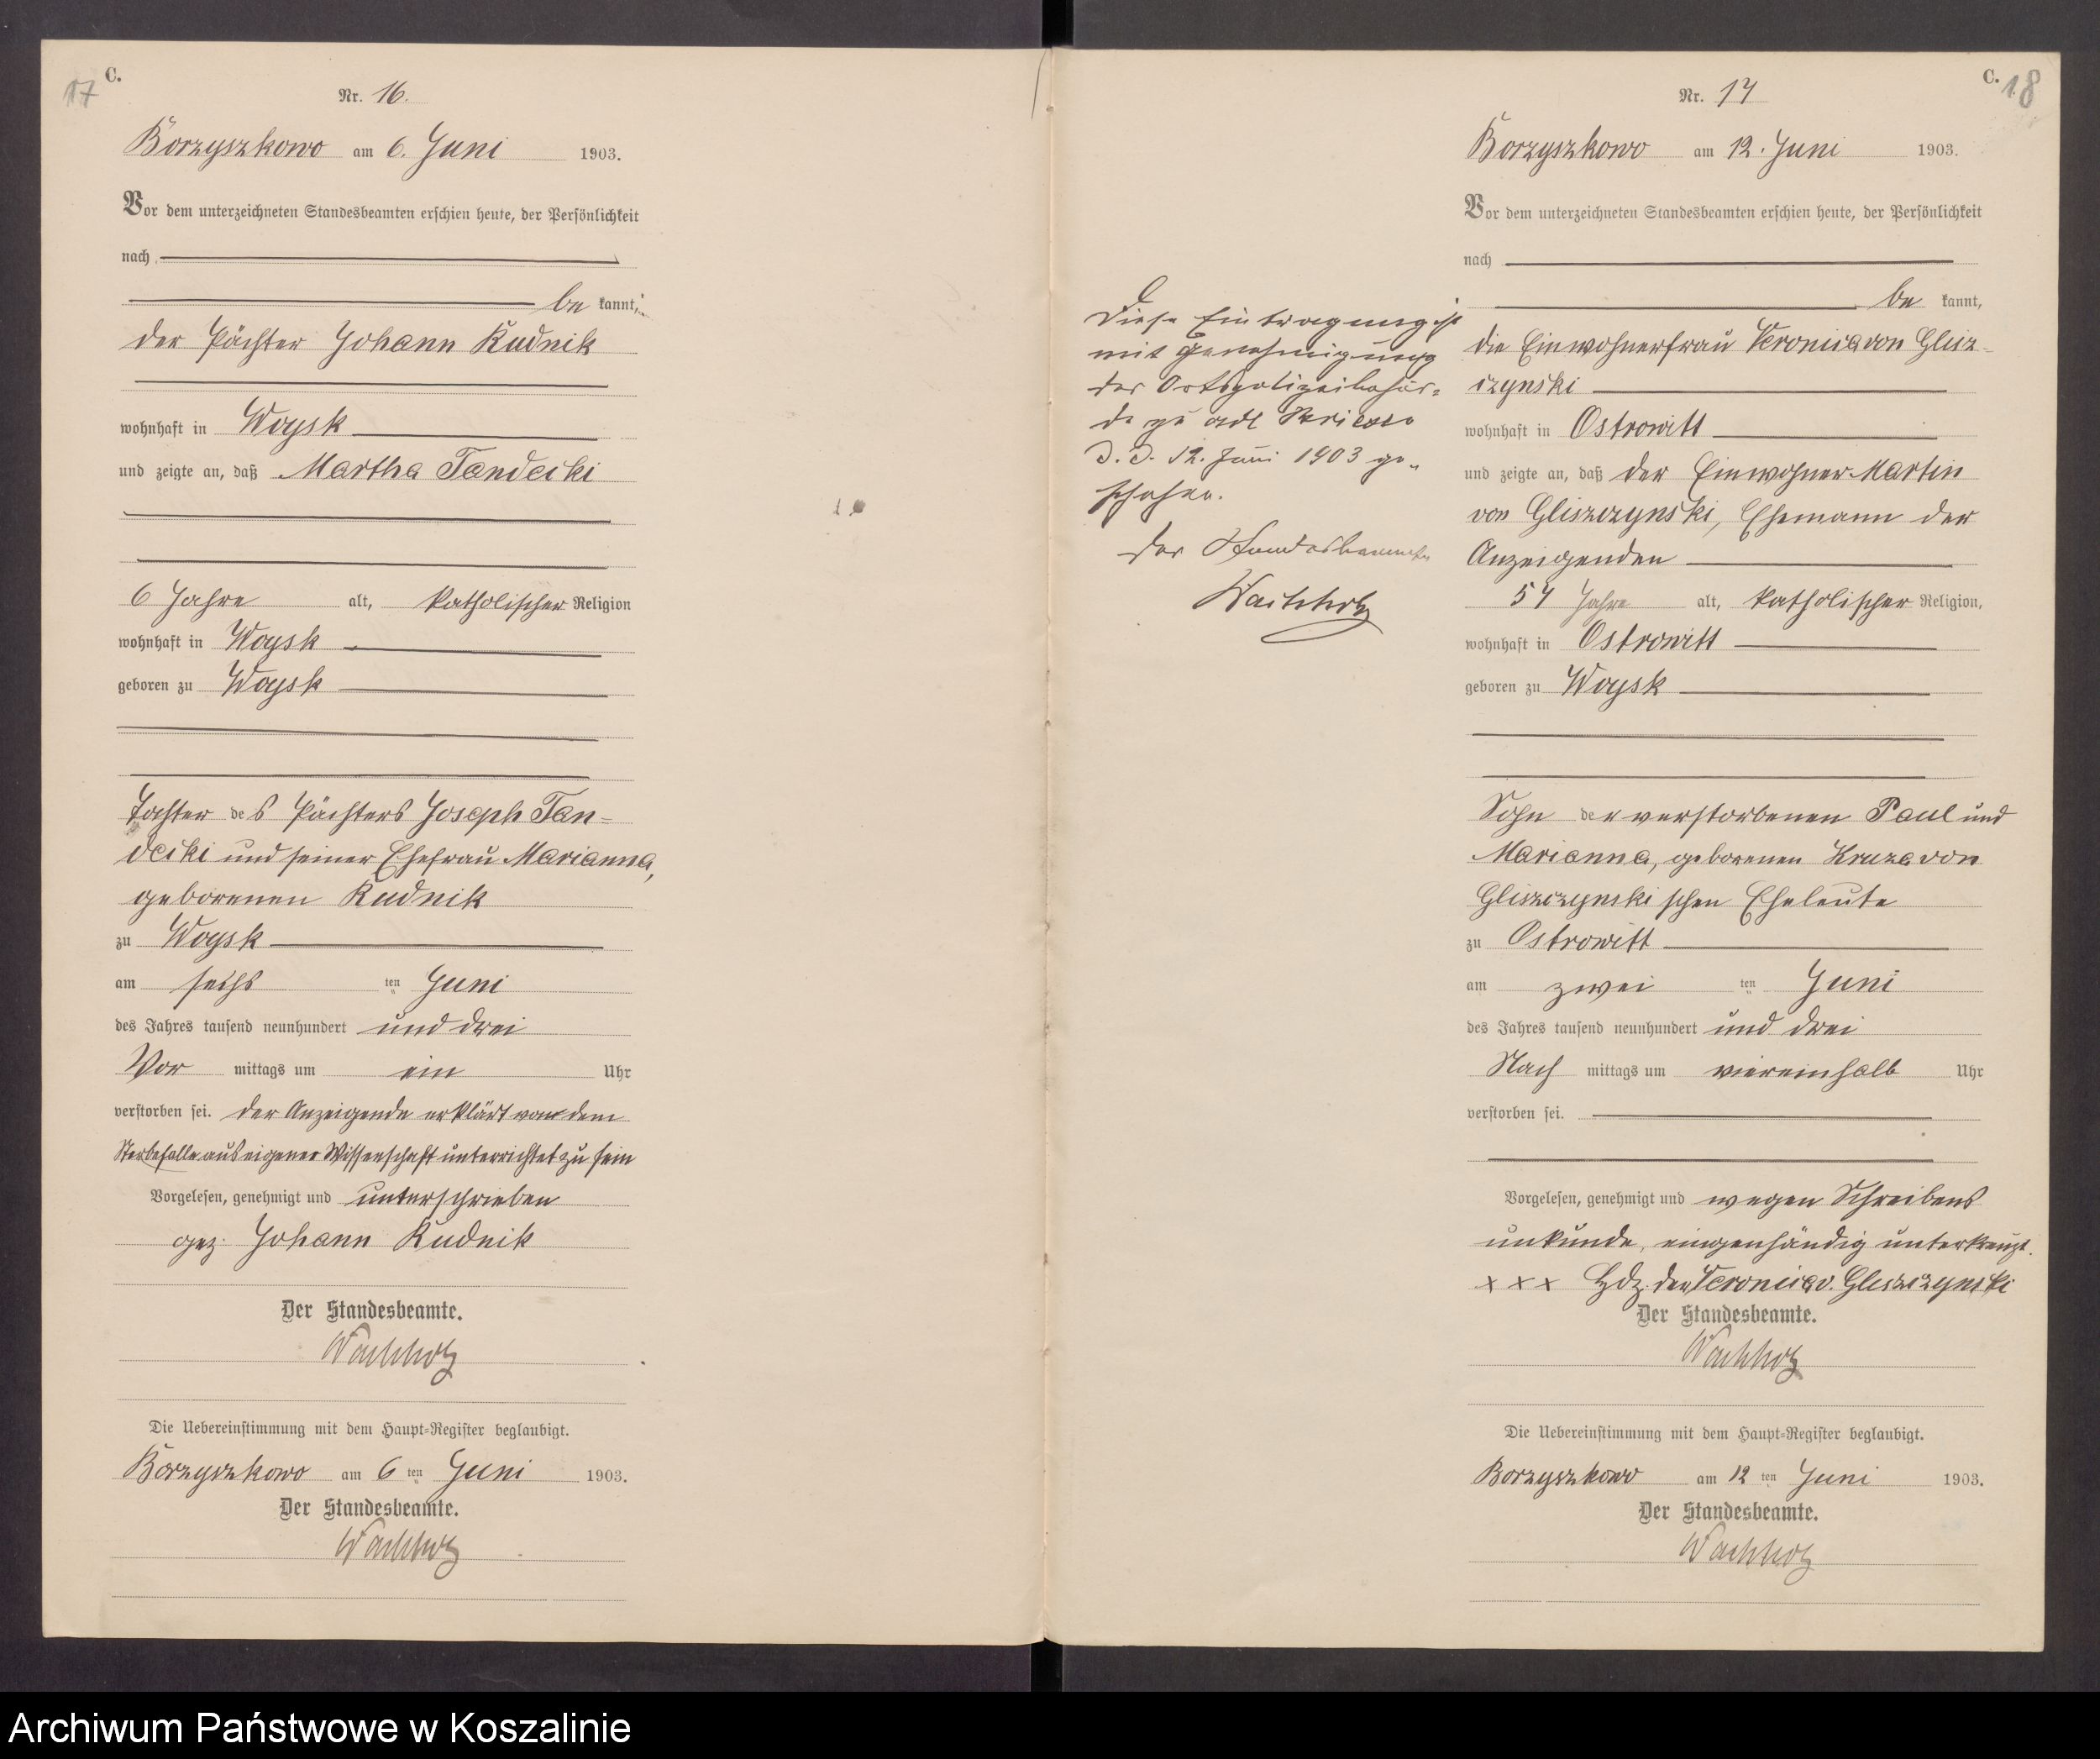 17
C.
Nr. 16.
Borzyszkowo am 6. Juni 1903.
Vor dem unterzeichneten Standesbeamten erschien heute, der Persönlichkeit
nach
be kannt,
der Pächter Johann Rudnik
wohnhaft in Woysk
und zeigte an, daß Martha Tandecki
6 Jahre alt, katholischer Religion
wohnhaft in Woysk
geboren zu Woysk
Tochter des Pächters Joseph Tan-
decki und seiner Ehefrau Marianna,
geborenen Rudnik
zu Woysk
am sechs ten Juni
des Jahres tausend neunhundert und drei
Vor mittags um ein Uhr
verstorben sei. Der Anzeigende erklärt von dem
Sterbefalle aus eigener Wissenschaft unterrichtet zu sein
Vorgelesen, genehmigt und unterschrieben
gez. Johann Rudnik
Der Standesbeamte.
Wachholz
Die Uebereinstimmung mit dem Haupt-Register beglaubigt.
Borzyszkowo am 6 ten Juni 1903.
Der Standesbeamte.
Wachholz
Diese Eintragung ist
mit Genehmigung
der Ortspolizeibehör-
de zu adl
d. d. 12. Juni 1903 ge-
schehen.
Der Standesbeamte
Wachholz
C.
18
Nr. 17
Borzyszkowo am 12. Juni 1903.
Vor dem unterzeichneten Standesbeamten erschien heute, der Persönlichkeit
nach
be kannt,
die Einwohnerfrau Veronica von Glisz-
czynski
wohnhaft in Ostrowitt
und zeigte an, daß der Einwohner Martin
von Gliszczynski, Ehemann der
Anzeigenden
57 Jahre alt, katholischer Religion,
wohnhaft in Ostrowitt
geboren zu Woysk
Sohn der verstorbenen Paul und
Marianna, geborenen Kruza von
Gliszczynski schen Eheleute
zu Ostrowitt
am zwei ten Juni
des Jahres tausend neunhundert und drei
Nach mittags um viereinhalb Uhr
verstorben sei.
Vorgelesen, genehmigt und wegen Schreibens
unkunde, eingenhändig unterkreuzt.
x x x Hdz. der Veronica v. Gliszczynski
Der Standesbeamte.
Wachholz
Die Uebereinstimmung mit dem Haupt-Register beglaubigt.
Borzyszkowo am 12 ten Juni 1903.
Der Standesbeamte.
Wachholz
Archiwum Państwowe w Koszalinie